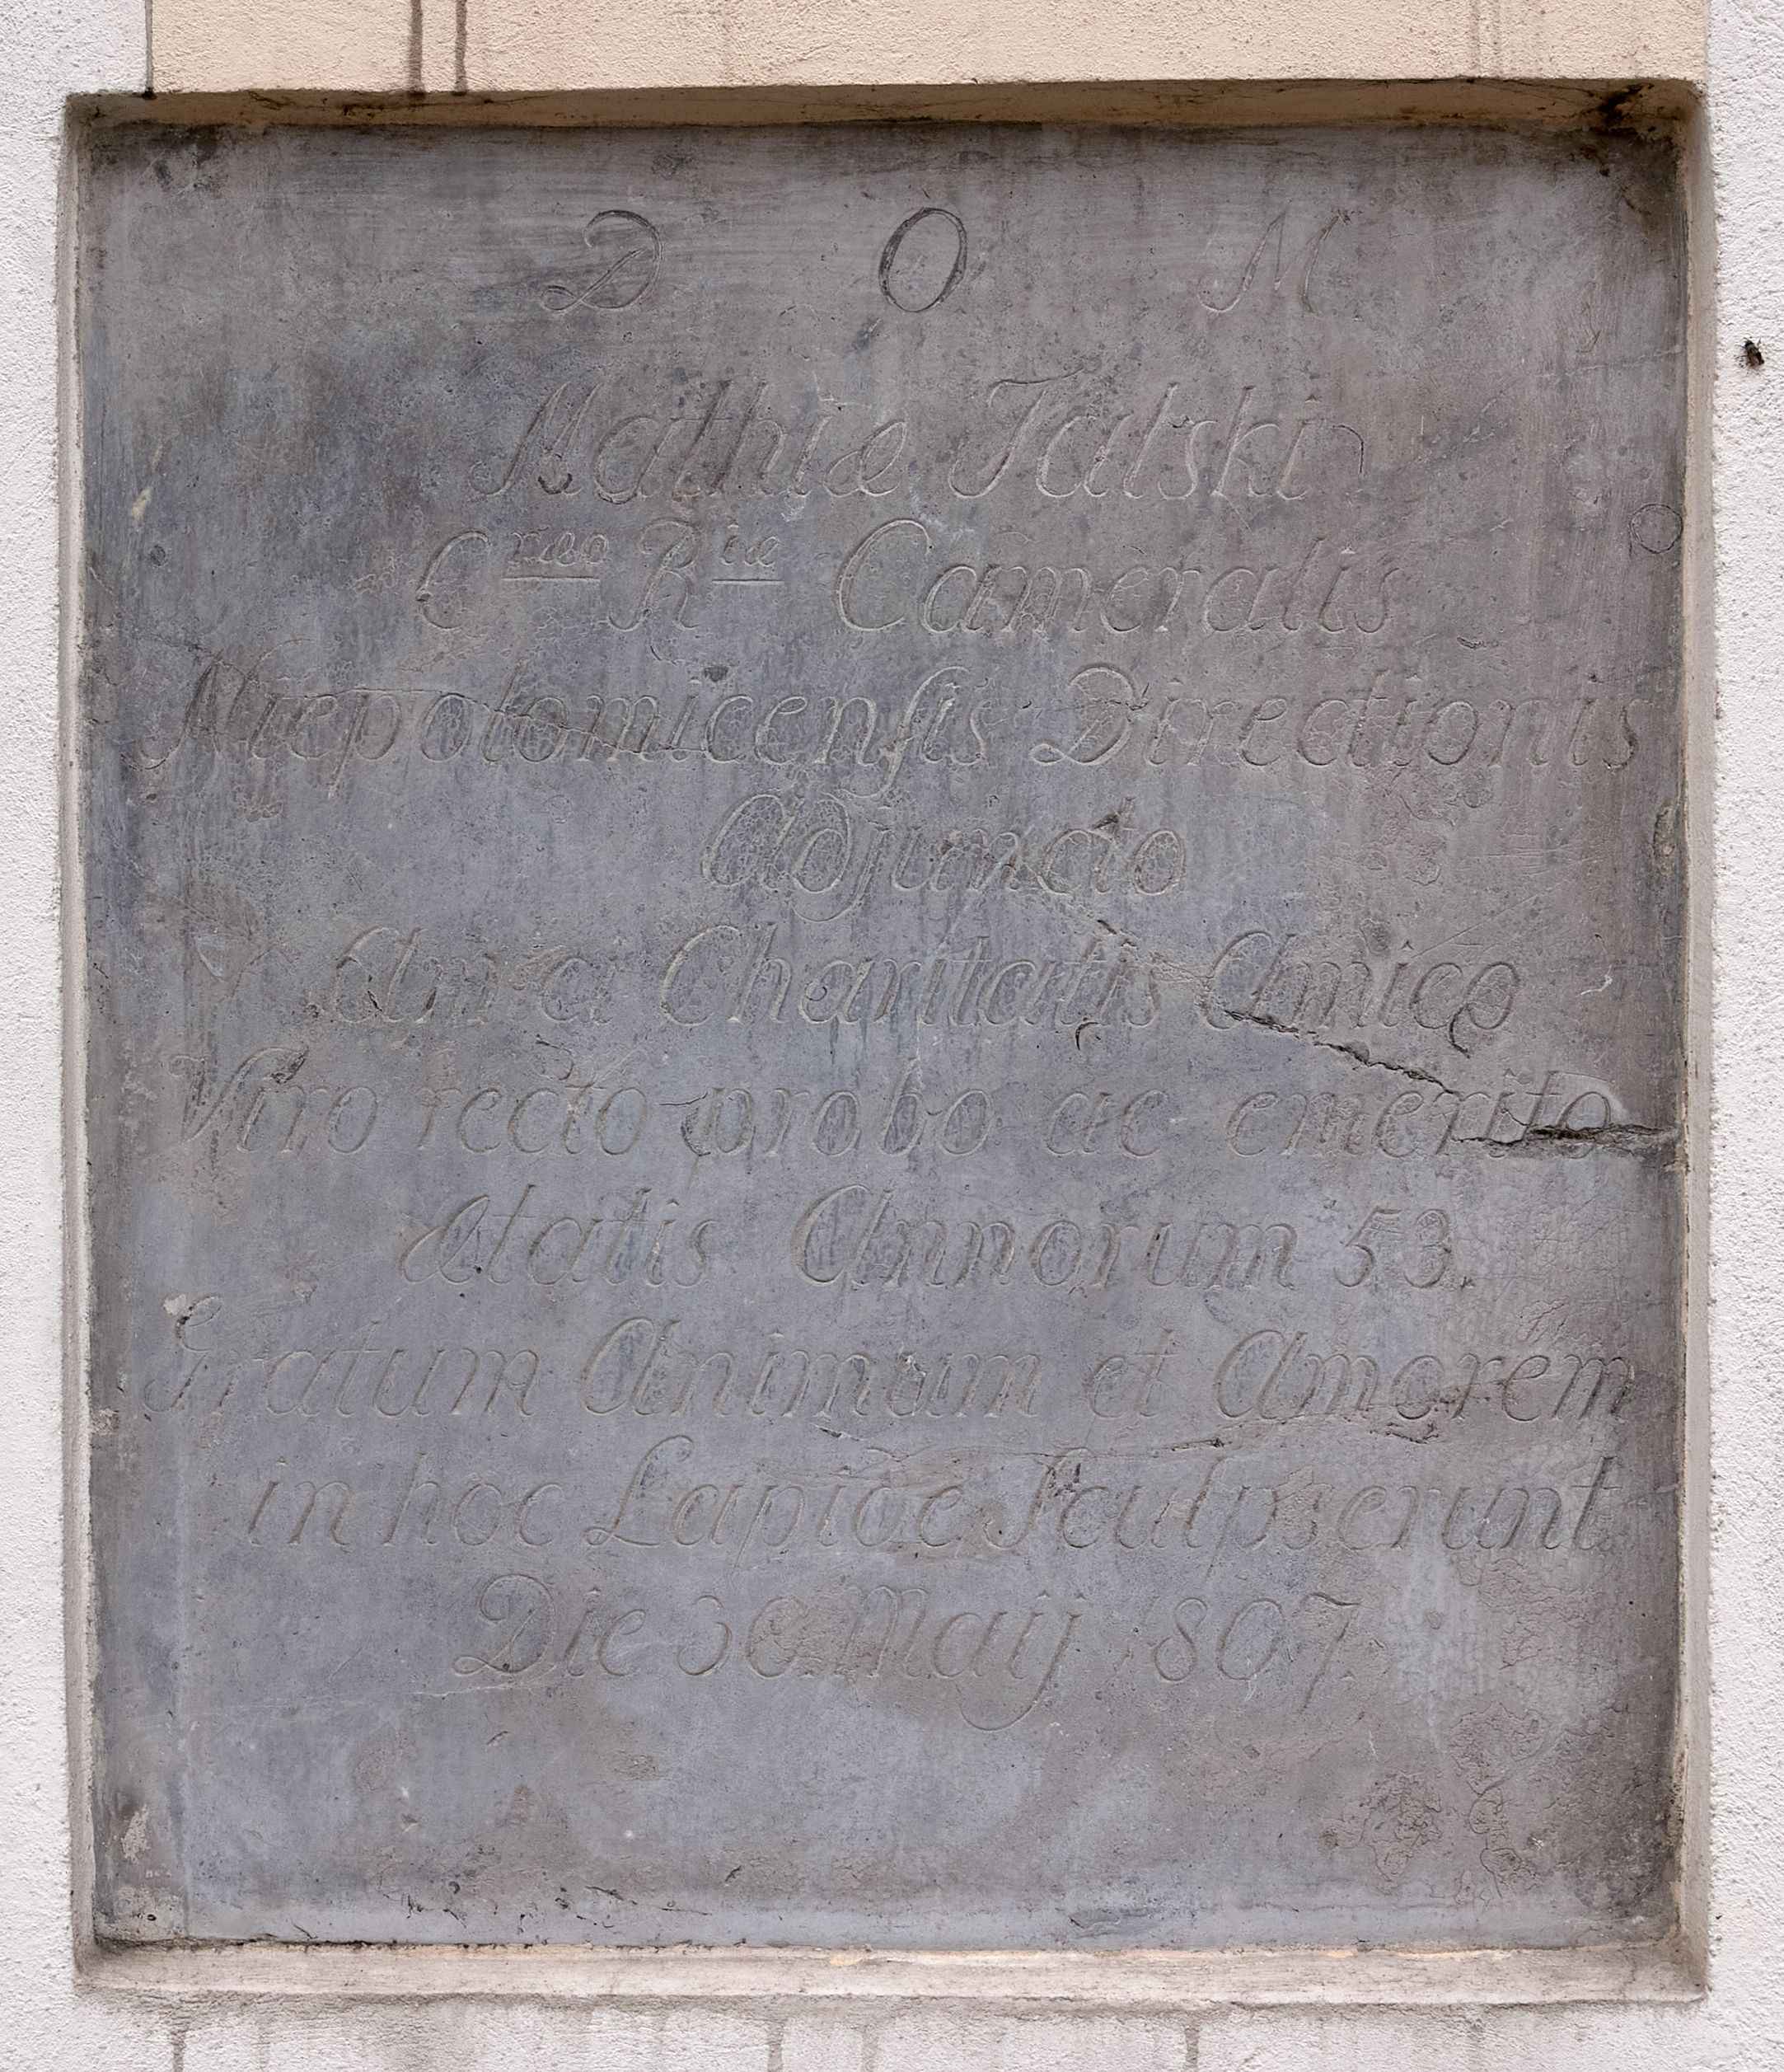 D O M
Mathiæ Talski
Cameralis
Niepolomicensis Directionis
Adjuncto
Charitatis Amico
Viro recto probo ac emerito
Ætatis Annorum 53.
Gratum Animum et Amorem
in hoc Lapide Sculpserunt
Die 30 Maij 1807